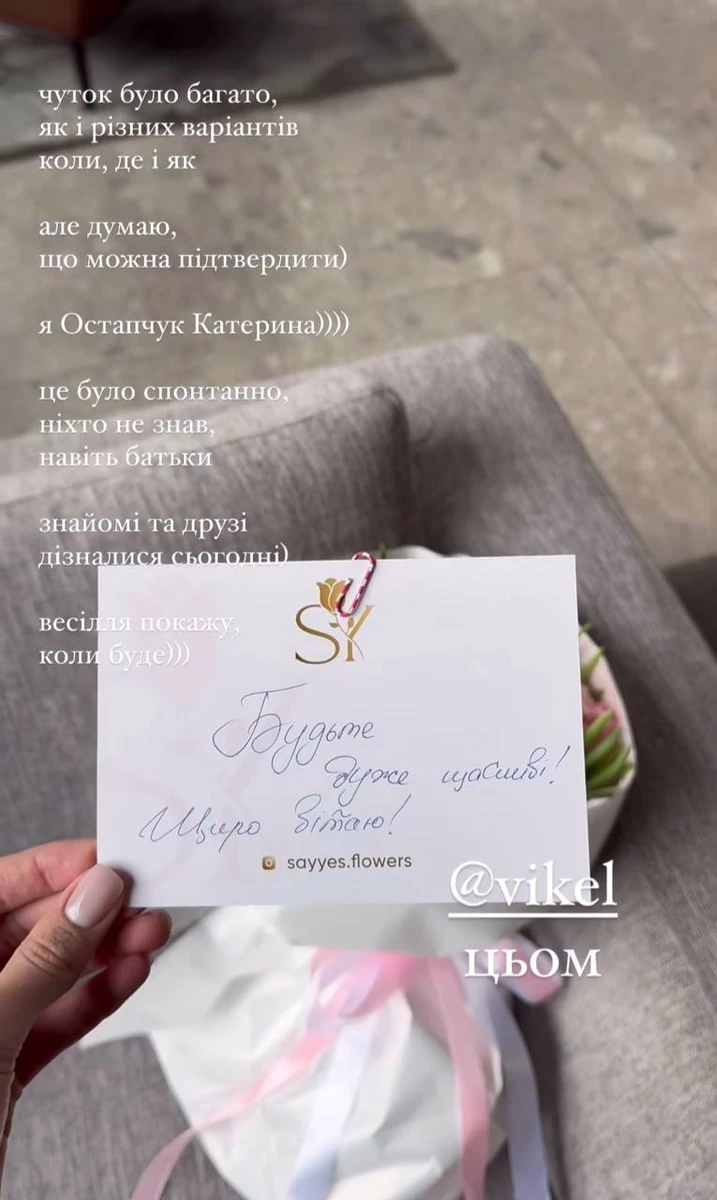 чуток було багато,
як і різних варіантів
коли, де і як
але думаю,
що можна підтвердити)
я Остапчук Катерина))))
це було спонтанно,
ніхто не знав,
навіть батьки
знайомі та друзі
дізналися сьогодні)
весілля покажу,
коли буде)))
SY
Будьте
дуже щасливі!
Щиро вітаю!
sayyes.flowers
@vikel
цьом